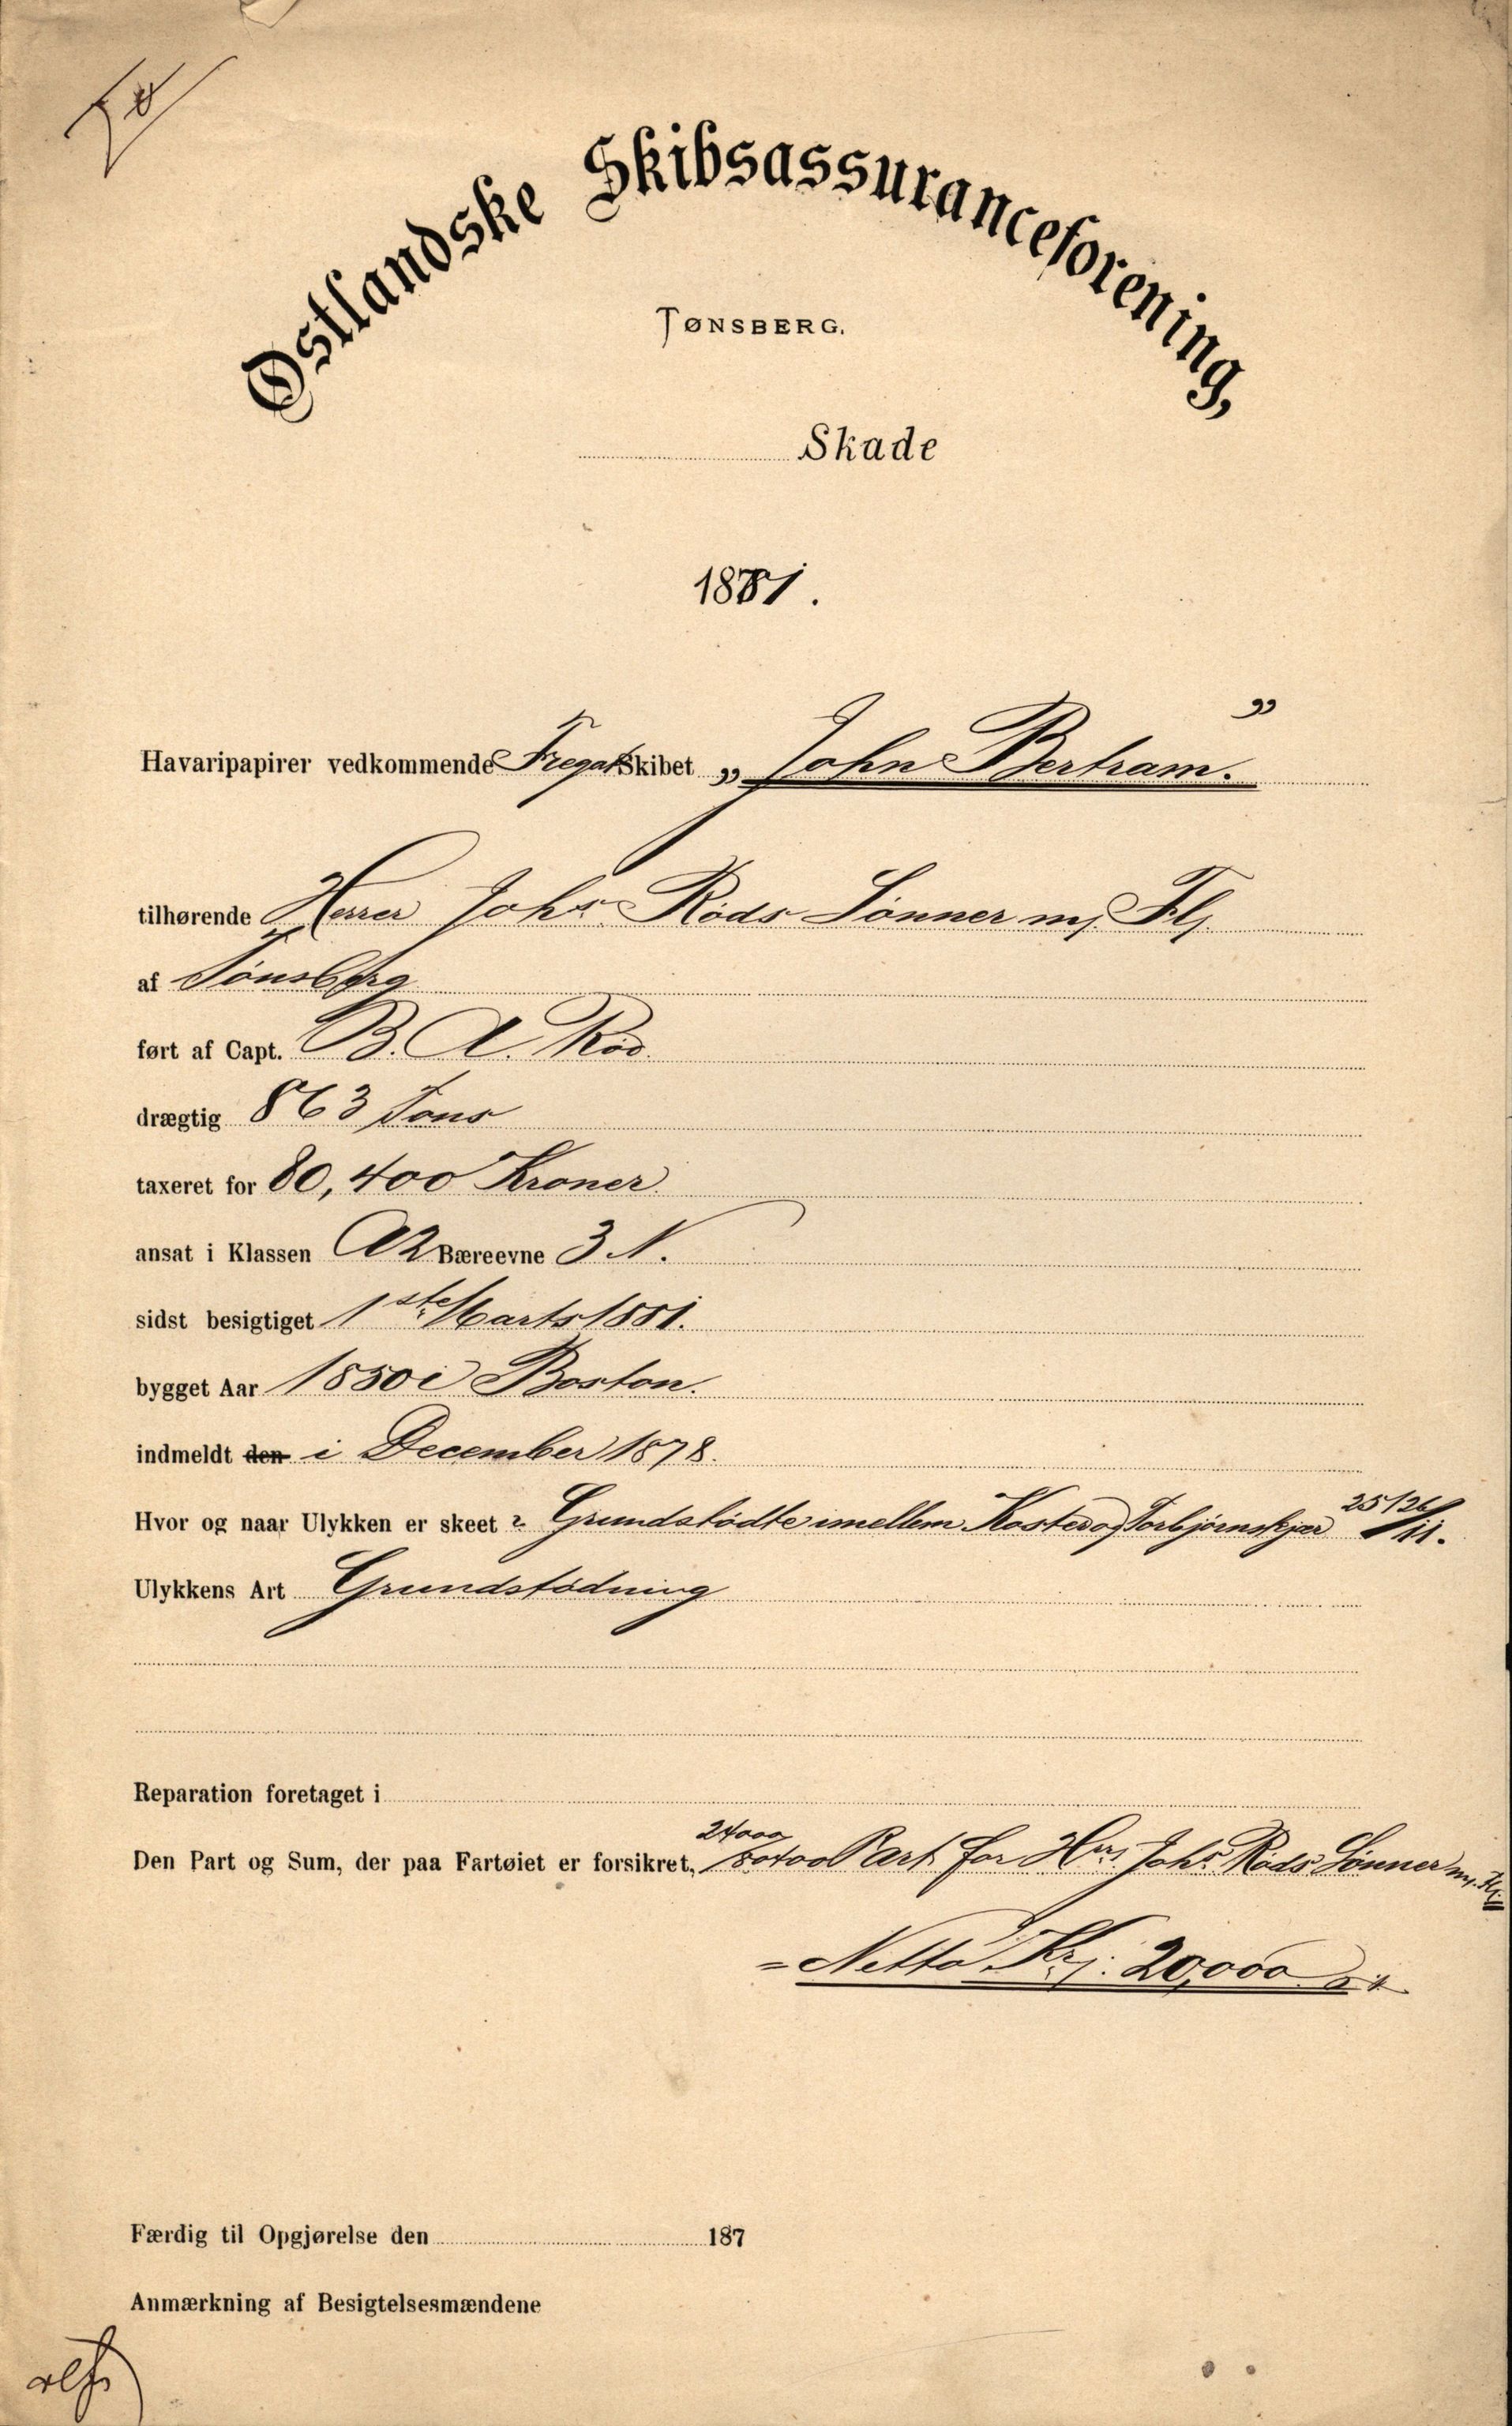 Østlandske Skibsassuranceforening,
TØNSBERG.
Skade
1881.
Havaripapirer vedkommende Fregatskibet „John Bertram."
tilhørende Herrer Johs. Röds Sönner m/ Fl/
af Tönsberg
ført af Capt. B. A. Röd
drægtig 863 Tons
taxeret for 80,400 Kroner.
ansat i Klassen A2 Bæreevne 3 N.
sidst besigtiget 1ste Marts 1881.
bygget Aar 1850 i Boston.
indmeldt den i December 1878.
Hvor og naar Ulykken er skeet? Grundstödte imellem Koster og Torbjörnskjær 25/26/11.
Ulykkens Art Grundstödning
Reparation foretaget i
24000
Den Part og Sum, der paa Fartøiet er forsikret, 80400 Part for Hrs. Johs. Röds Sönner m/. Fl/.
= Netto Kr/: 20,000
Færdig til Opgjørelse den 187
Anmærkning af Besigtelsesmændene